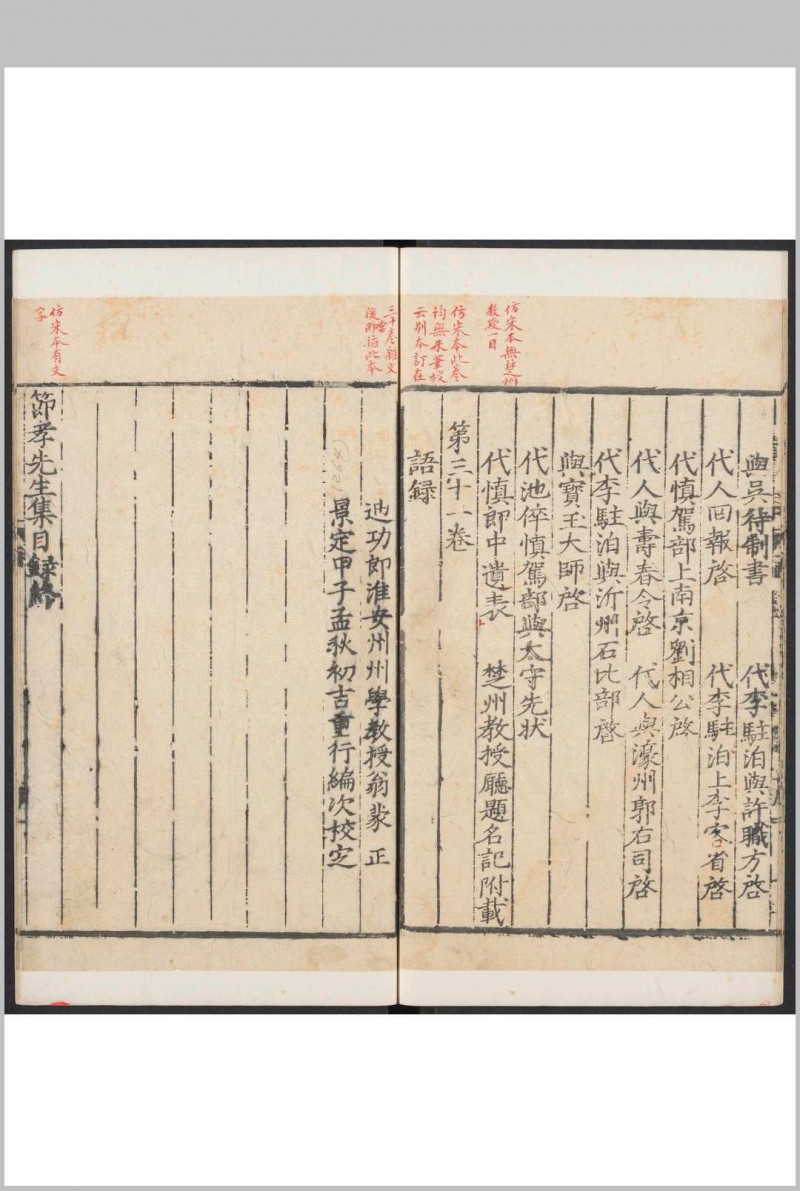 仿宋本無楚州
教授一目
仿宋本此卷
均無朱筆校
云別本訂在
三十卷雜文
後即指此本
仿宋本有文
字
與吳待制書　代李駐泊與許職方啓
代人回報啓　代李駐泊上李客省啓
代慎駕部上南京劉相公啓
代人與壽春令啓　代人與濠州郭右司啓
代李駐泊與沂州石比部啓
與寶玉大師啓
代池倅慎駕部與太守先狀
代慎郎中遺表　楚州教授廳題名記附載
第三十一卷
語録
迪功郎淮安州州學教授翁蒙正
景定甲子孟秋初吉重行編次校定
節孝先生集目録終